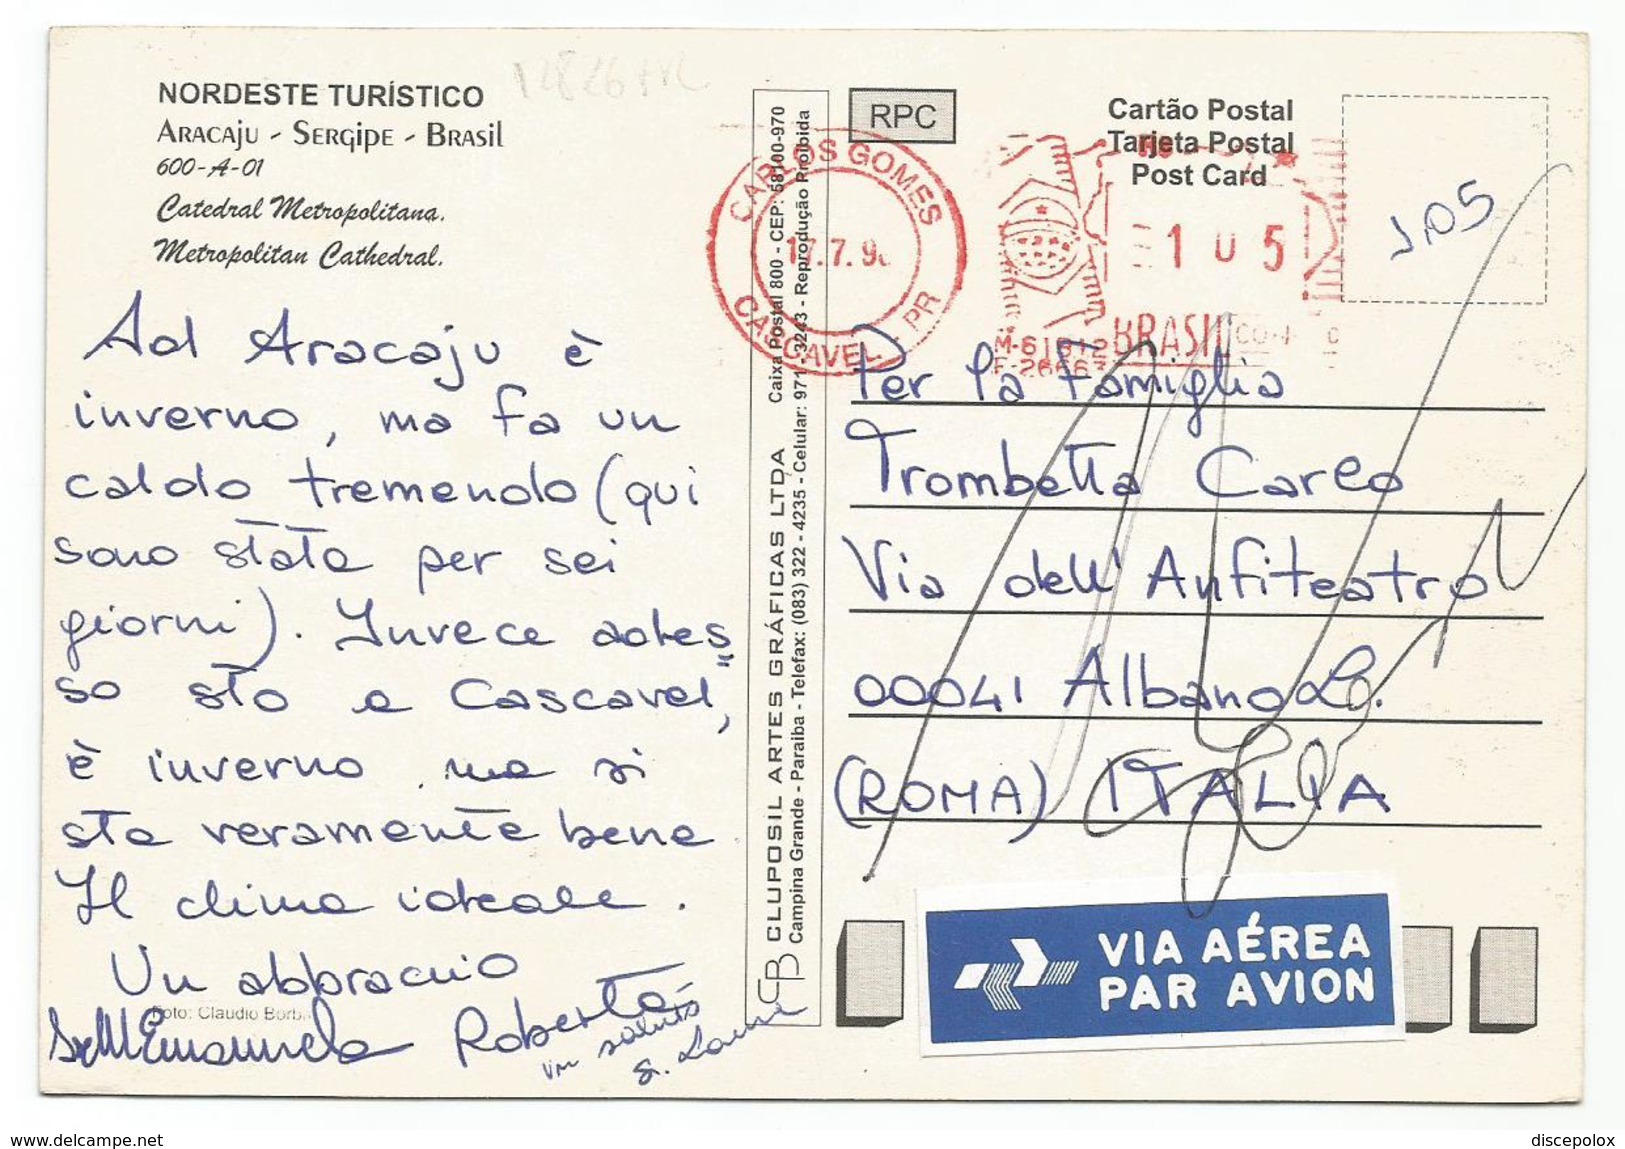 NORDESTE TURÍSTICO
ARACAJU - SERGIPE - BRASIL
600-A-01
Catedral Metropolitana.
Metropolitan Cathedral.
Ad Aracaju è
inverno, ma fa un
caldo tremendo (qui
sono stata per sei
giorni). Invece ades
so sto a "Cascavel",
è inverno ma si
sta veramente bene
Il clima ideale.
Un abbraccio
Foto: Claudio Borb
Emanuela Roberta
un saluto
Sr. Laura
CLUPOSIL ARTES GRÁFICAS LTDA Caixa Postal 800 - CEP: 58100-970
Campina Grande - Paraiba - Telefax: (083) 322 - 4235 - Celular: 971 - 3243 - Reprodução Proibida
RPC
CARLOS GOMES
17.7.9
CASCAVEL PR
Cartão Postal
Tarjeta Postal
Post Card
105
BRASIL
1,05
Per la Famiglia
Trombetta Carlo
Via dell'Anfiteatro
00041 Albano Lo.
(ROMA) ITALIA
VIA AÉREA
PAR AVION
www.delcampe.net
discepolox